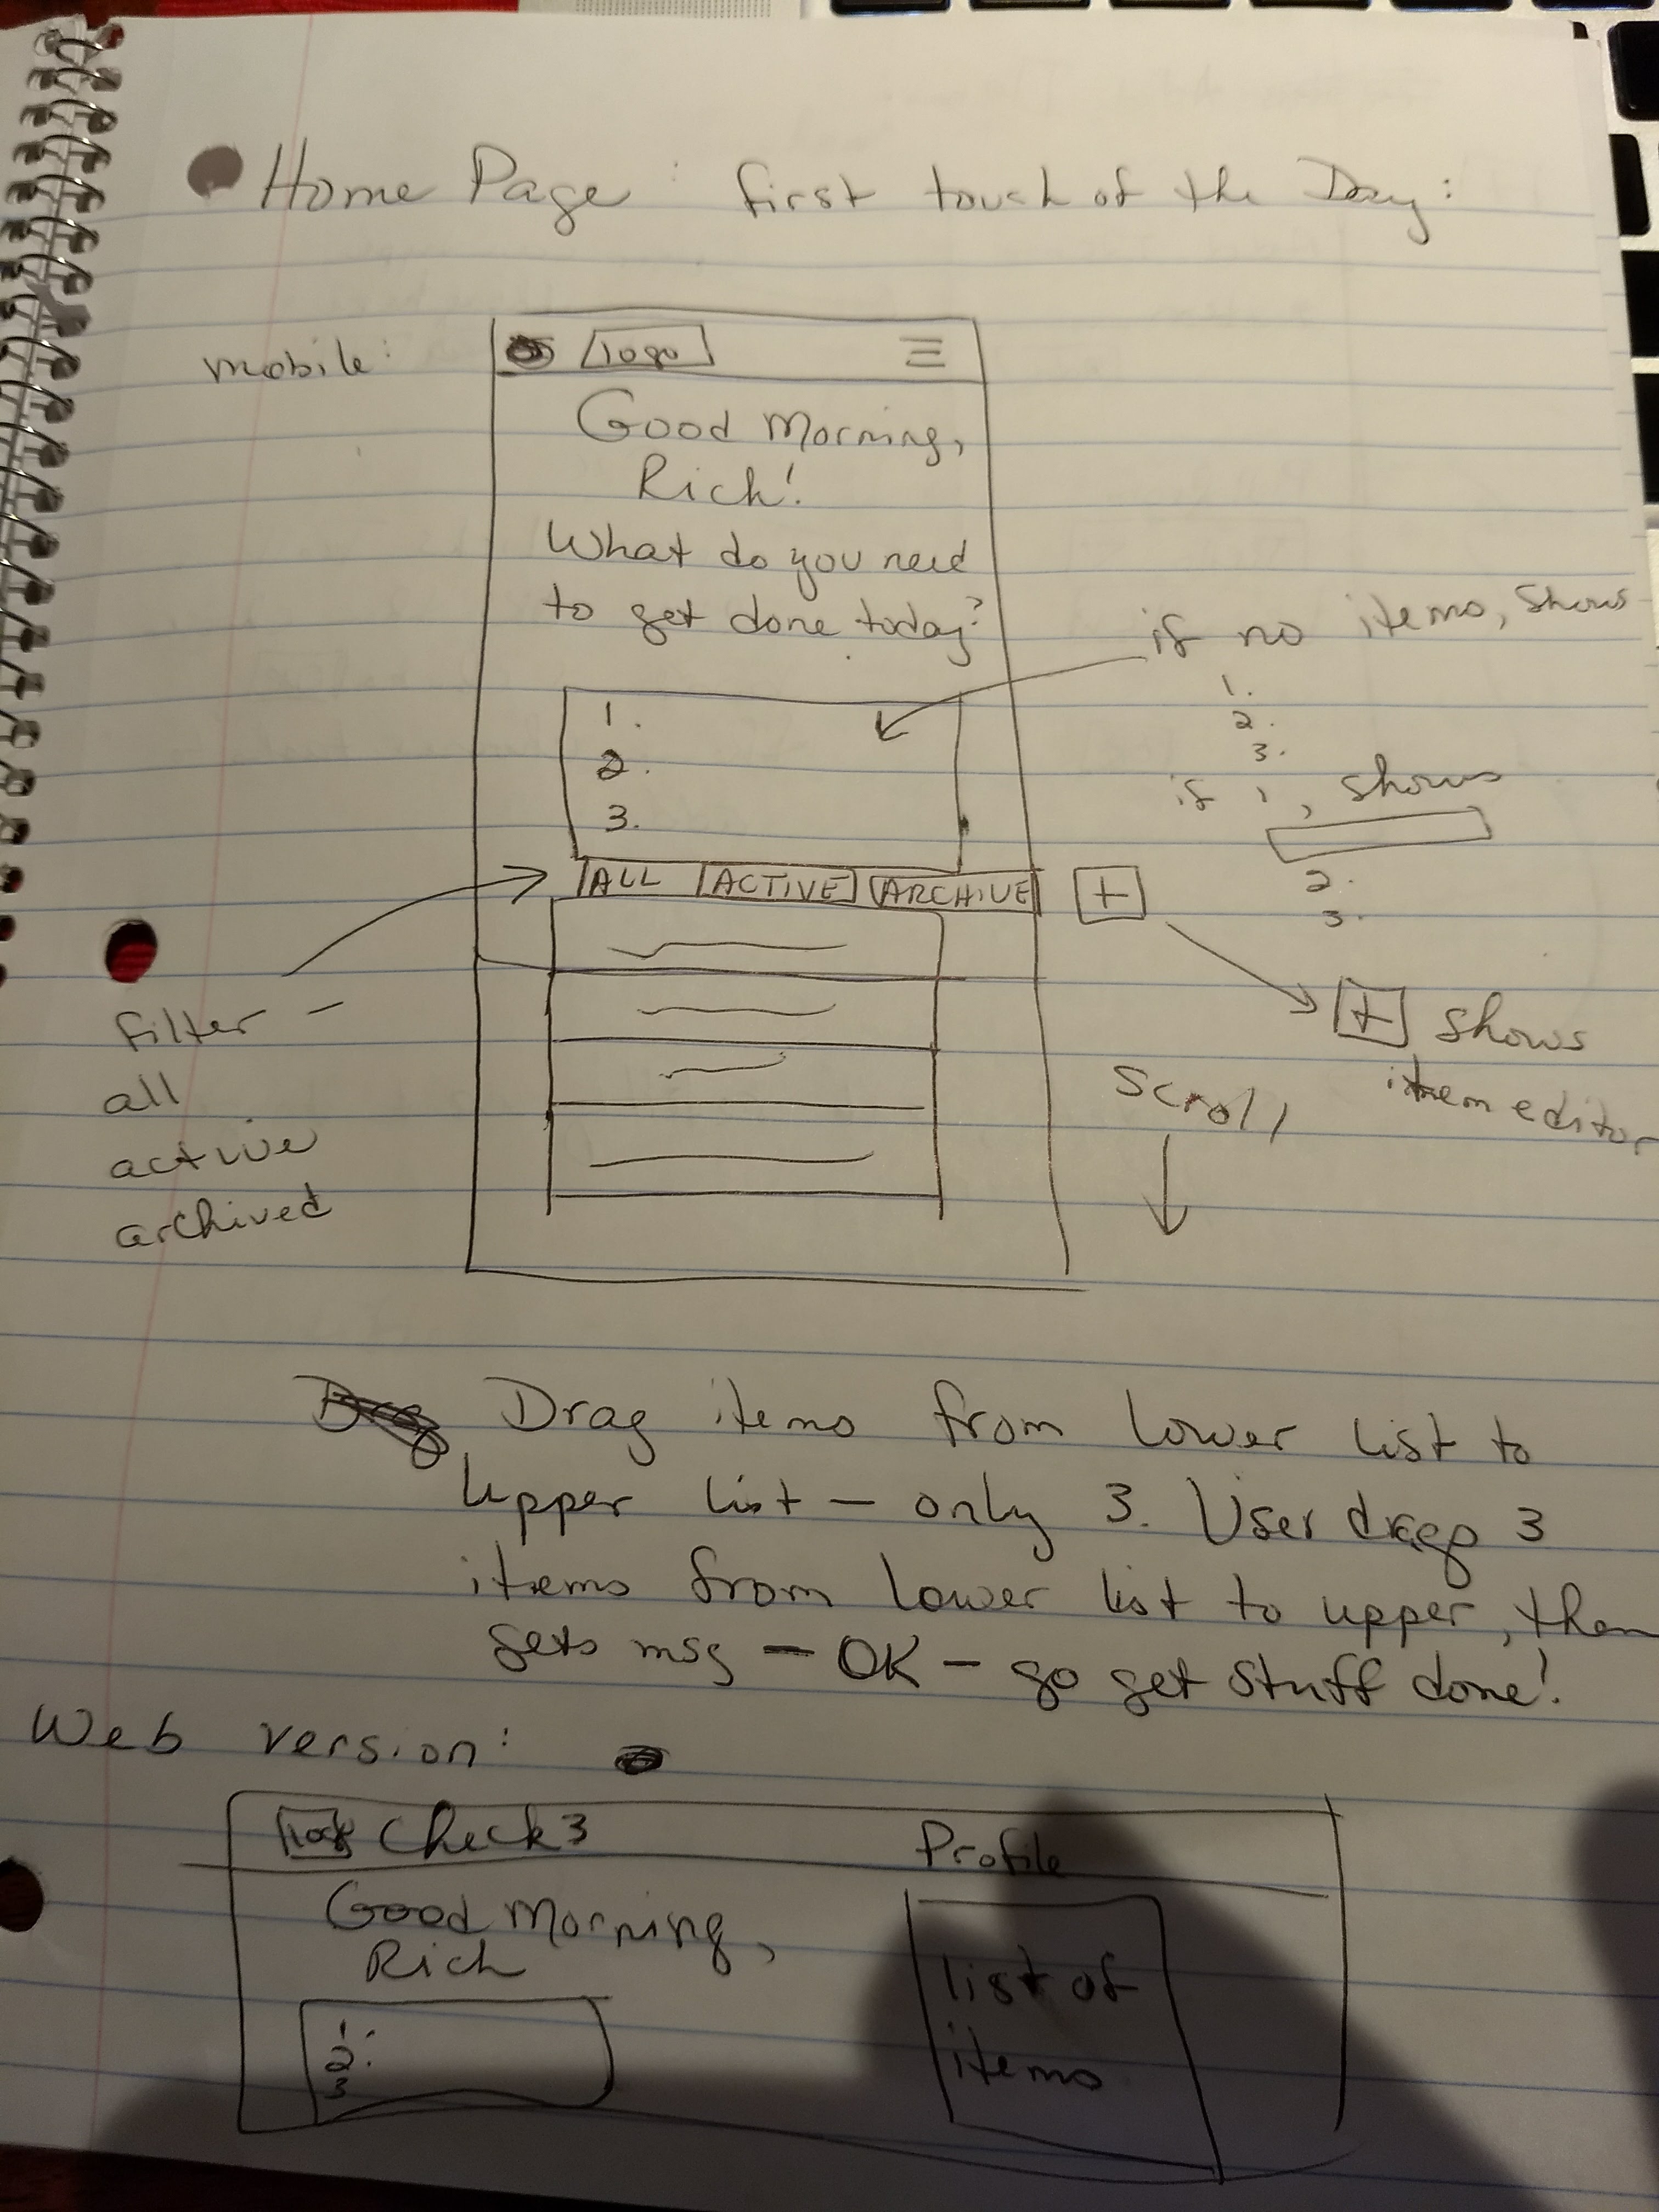 Home Page : first touch of the Day:
mobile:
logo
Good Morning,
Rich!
What do you need
to get done today?
1.
2.
3.
if no items, shows
1.
2.
3.
if 1, shows
2.
3.
ALL ACTIVE ARCHIVE +
filter -
all
active
archived
+ shows
item editor
Scroll
Drag items from lower list to
upper list - only 3. User drags 3
items from lower list to upper, then
gets msg - OK - go get stuff done!
Web version:
logo Check3 Profile
Good Morning,
Rich
1.
2.
3
list of
items